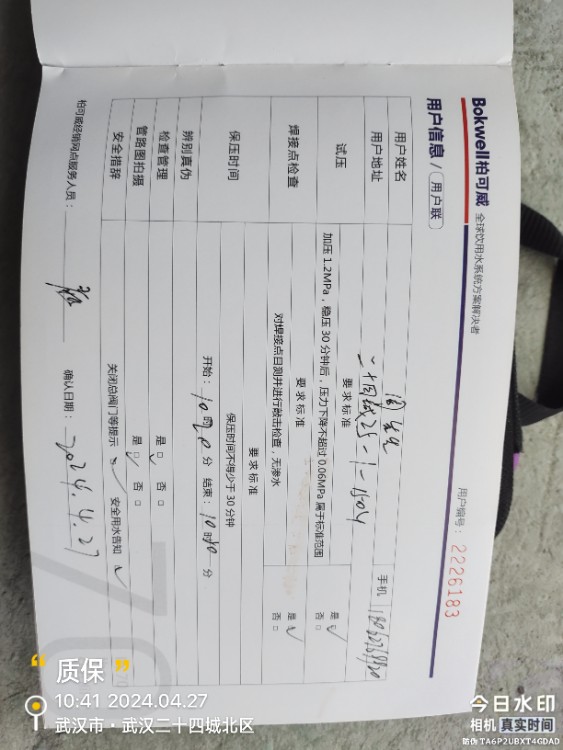 Bokwell柏可威 全球饮用水系统方案解决者
用户信息/用户联 用户编号：2226183
用户姓名 手机
用户地址
试压 要求标准
加压1.2MPa，稳压30分钟后，压力下降不超过0.06MPa属于标准范围 是□ 否□
焊接点检查 要求标准
对焊接点目测并进行敲击检查，无渗水 是□ 否□
保压时间 要求标准
保压时间不得少于30分钟
开始：10时 分 结束：10时 分
辨别真伪 是□ 否□
检查管理 是□ 否□
管路图拍摄
安全措辞 关闭总阀门等提示 安全用水告知
柏可威经销网点服务人员： 确认日期：2024.4.27
“质保”
10:41 2024.04.27
武汉市·武汉二十四城北区
今日水印
相机 真实时间
防伪 TA6P2UBXT4GDAD